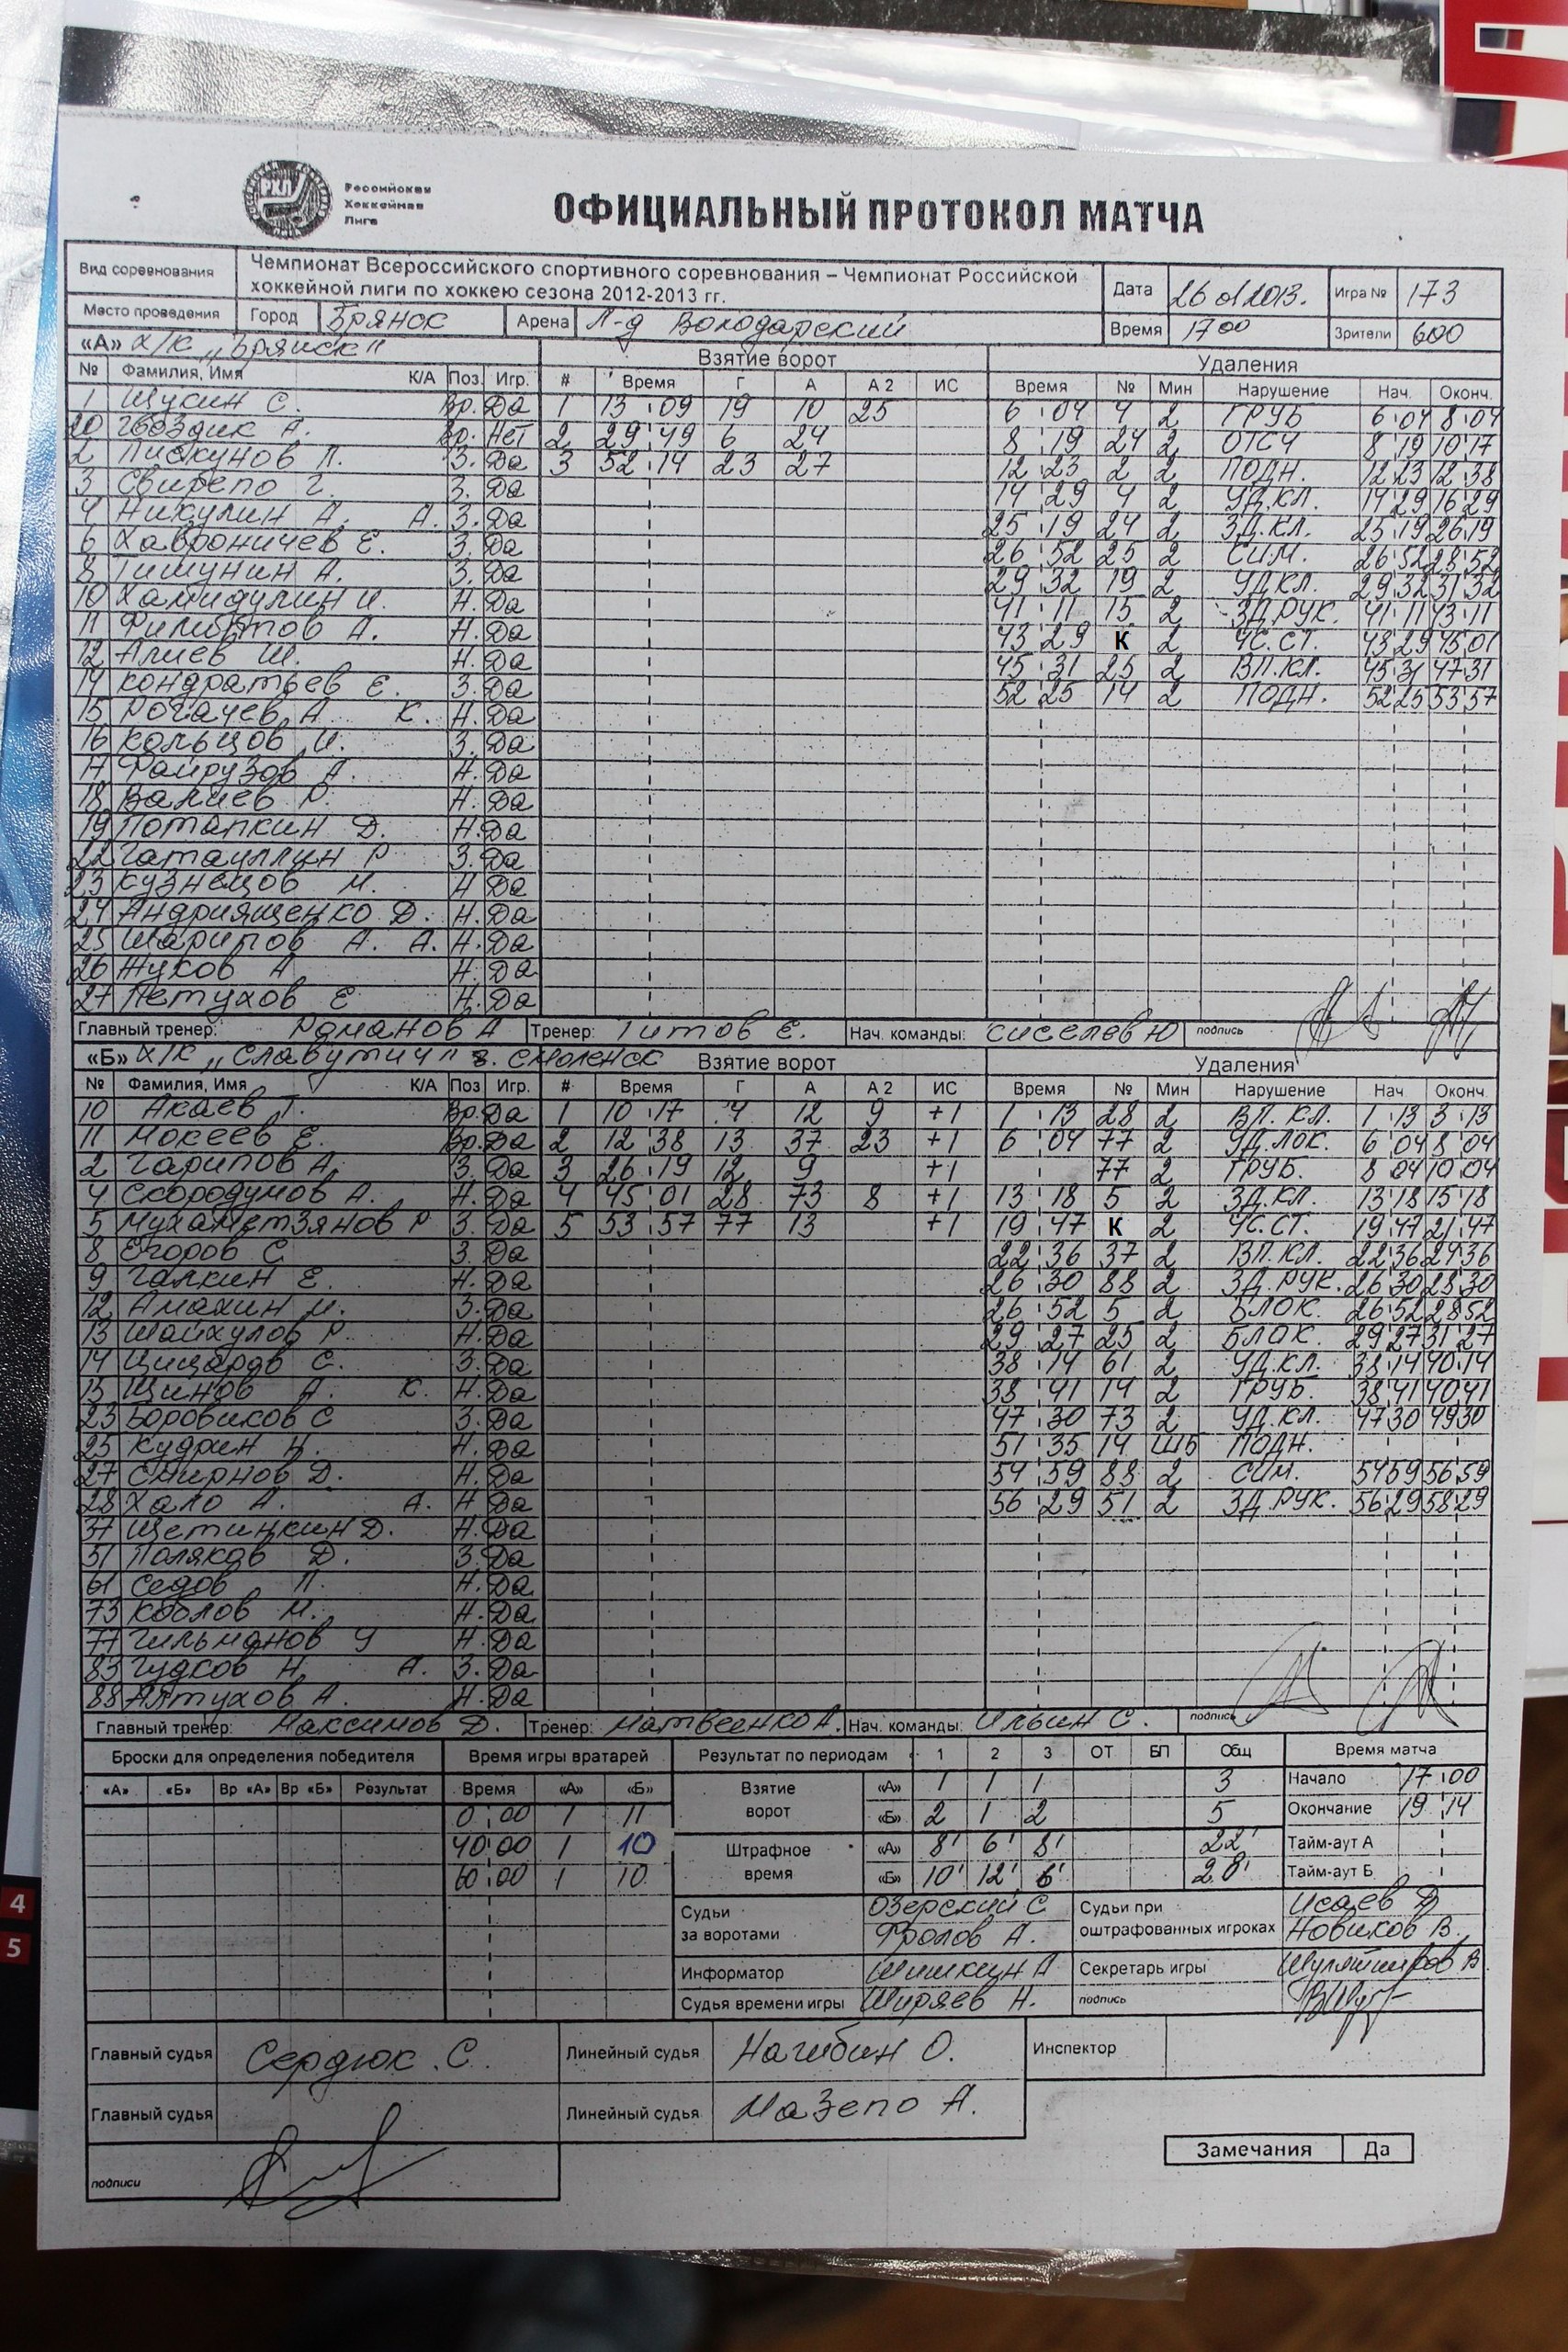 РХЛ Российская
Хоккейная
Лига
ОФИЦИАЛЬНЫЙ ПРОТОКОЛ МАТЧА
Вид соревнования Чемпионат Всероссийского спортивного соревнования – Чемпионат Российской
хоккейной лиги по хоккею сезона 2012-2013 гг. Дата 26 01 2013. Игра № 173
Место проведения Город Брянск Арена Л-д Володарский Время 17 00 Зрители 600
«А» Х/К „Брянск" Взятие ворот Удаления
№ Фамилия, Имя К/А Поз. Игр. # Время Г А А 2 ИС Время № Мин Нарушение Нач. Оконч.
1 Щукин С. Вр. Да 1 13:09 19 10 25 6:04 4 2 ГРУБ 6:04 8:04
20 Гвоздик А. Вр. Нет 2 29:49 6 24 8:19 24 2 ОТСЧ 8:19 10:17
2 Пискунов П. З. Да 3 52:14 23 27 12:23 2 2 ПОДН. 12:23 12:38
3 Свирепо Г. З. Да 14:29 4 2 УД.КЛ. 14:29 16:29
4 Никулин А. А. З. Да 25:19 24 2 ЗД.КЛ. 25:19 26:19
6 Хаврoничев Е. З. Да 26:52 25 2 СИМ. 26:52 28:52
8 Тимунин А. З. Да 29:32 19 2 УД.КЛ. 29:32 31:32
10 Хамидулин И. Н. Да 41:11 15 2 ЗД.РУК. 41:11 43:11
11 Филиппов А. Н. Да 43:29 К 2 ЧС.СТ. 43:29 45:01
12 Алиев Ш. Н. Да 45:31 25 2 ВП.КЛ. 45:31 47:31
14 Кондратьев Е. З. Да 52:25 14 2 ПОДН. 52:25 53:57
15 Рогачев А. К. Н. Да
16 Кольцов И. З. Да
17 Файрузов А. Н. Да
18 Валиев Р. Н. Да
19 Потапкин Д. Н. Да
22 Гатауллин Р З. Да
23 Кузнецов М. Н Да
24 Андриященко Д. Н. Да
25 Шарипов А. А. Н. Да
26 Жуков А Н. Да
27 Петухов Е Н. Да
Главный тренер: Романов А Тренер: Титов Е. Нач. команды: Сиселев Ю подпись
«Б» Х/К „Славутич" г. Смоленск Взятие ворот Удаления
№ Фамилия, Имя К/А Поз Игр. # Время Г А А 2 ИС Время № Мин Нарушение Нач Оконч.
10 Акаев Т. Вр. Да 1 10:17 4 12 9 +1 1:13 28 2 ВП.КЛ. 1:13 3:13
11 Мокеев Е. Вр. Да 2 12:38 13 37 23 +1 6:04 77 2 УД.ЛОК. 6:04 8:04
2 Гарипов А. З. Да 3 26:19 12 9 +1 77 2 ГРУБ. 8:04 10:04
4 Скородумов А. Н. Да 4 45:01 28 73 8 +1 13:18 5 2 ЗД.КЛ. 13:18 15:18
5 Мухаметзянов Р З. Да 5 53:57 77 13 +1 19:47 К 2 ЧС.СТ. 19:47 21:47
8 Егоров С З. Да 22:36 37 2 ВП.КЛ. 22:36 24:36
9 Галкин Е. Н. Да 26:30 88 2 ЗД.РУК. 26:30 28:30
12 Амахин И. З. Да 26:52 5 2 БЛОК. 26:52 28:52
13 Шайхулов Р Н. Да 29:27 25 2 БЛОК. 29:27 31:27
14 С. З. Да 38:14 61 2 УД.КЛ. 38:14 40:14
15 Щинов А. К. Н. Да 38:41 14 2 ГРУБ. 38:41 40:41
23 Боровиков С З. Да 47:30 73 2 УД.КЛ. 47:30 49:30
25 Кудрин Н. Н. Да 51:35 14 ШБ ПОДН.
27 Смирнов Д. Н. Да 54:59 88 2 СИМ. 54:59 56:59
28 Хало А. А. Н Да 56:29 51 2 ЗД.РУК. 56:29 58:29
37 Щетинкин Д. Н. Да
51 Поляков Д. З. Да
61 Седов П. Н. Да
73 Козлов М. Н. Да
77 Гильманов У Н. Да
83 Гудков Н. А. З. Да
88 Алтухов А. Н. Да
Главный тренер: Максимов Д. Тренер: Матвеенко А. Нач. команды: Ильин С. подпись
Броски для определения победителя Время игры вратарей Результат по периодам 1 2 3 ОТ БП Общ Время матча
«А» «Б» Вр «А» Вр «Б» Результат Время «А» «Б» Взятие ворот «А» 1 1 1 3 Начало 17:00
0:00 1 11 «Б» 2 1 2 5 Окончание 19:14
40:00 1 10 Штрафное время «А» 8' 6' 8' 22' Тайм-аут А
60:00 1 10 «Б» 10' 12' 6' 28' Тайм-аут Б
Судьи за воротами Озерский С Судьи при оштрафованных игроках Исаев Д
Фролов А. Новиков В.
Информатор Шишкин А Секретарь игры В
Судья времени игры Ширяев Н. подпись
Главный судья Сердюк С. Линейный судья Нагибин О. Инспектор
Главный судья Линейный судья Мазепо А.
Замечания Да
подписи
4
5